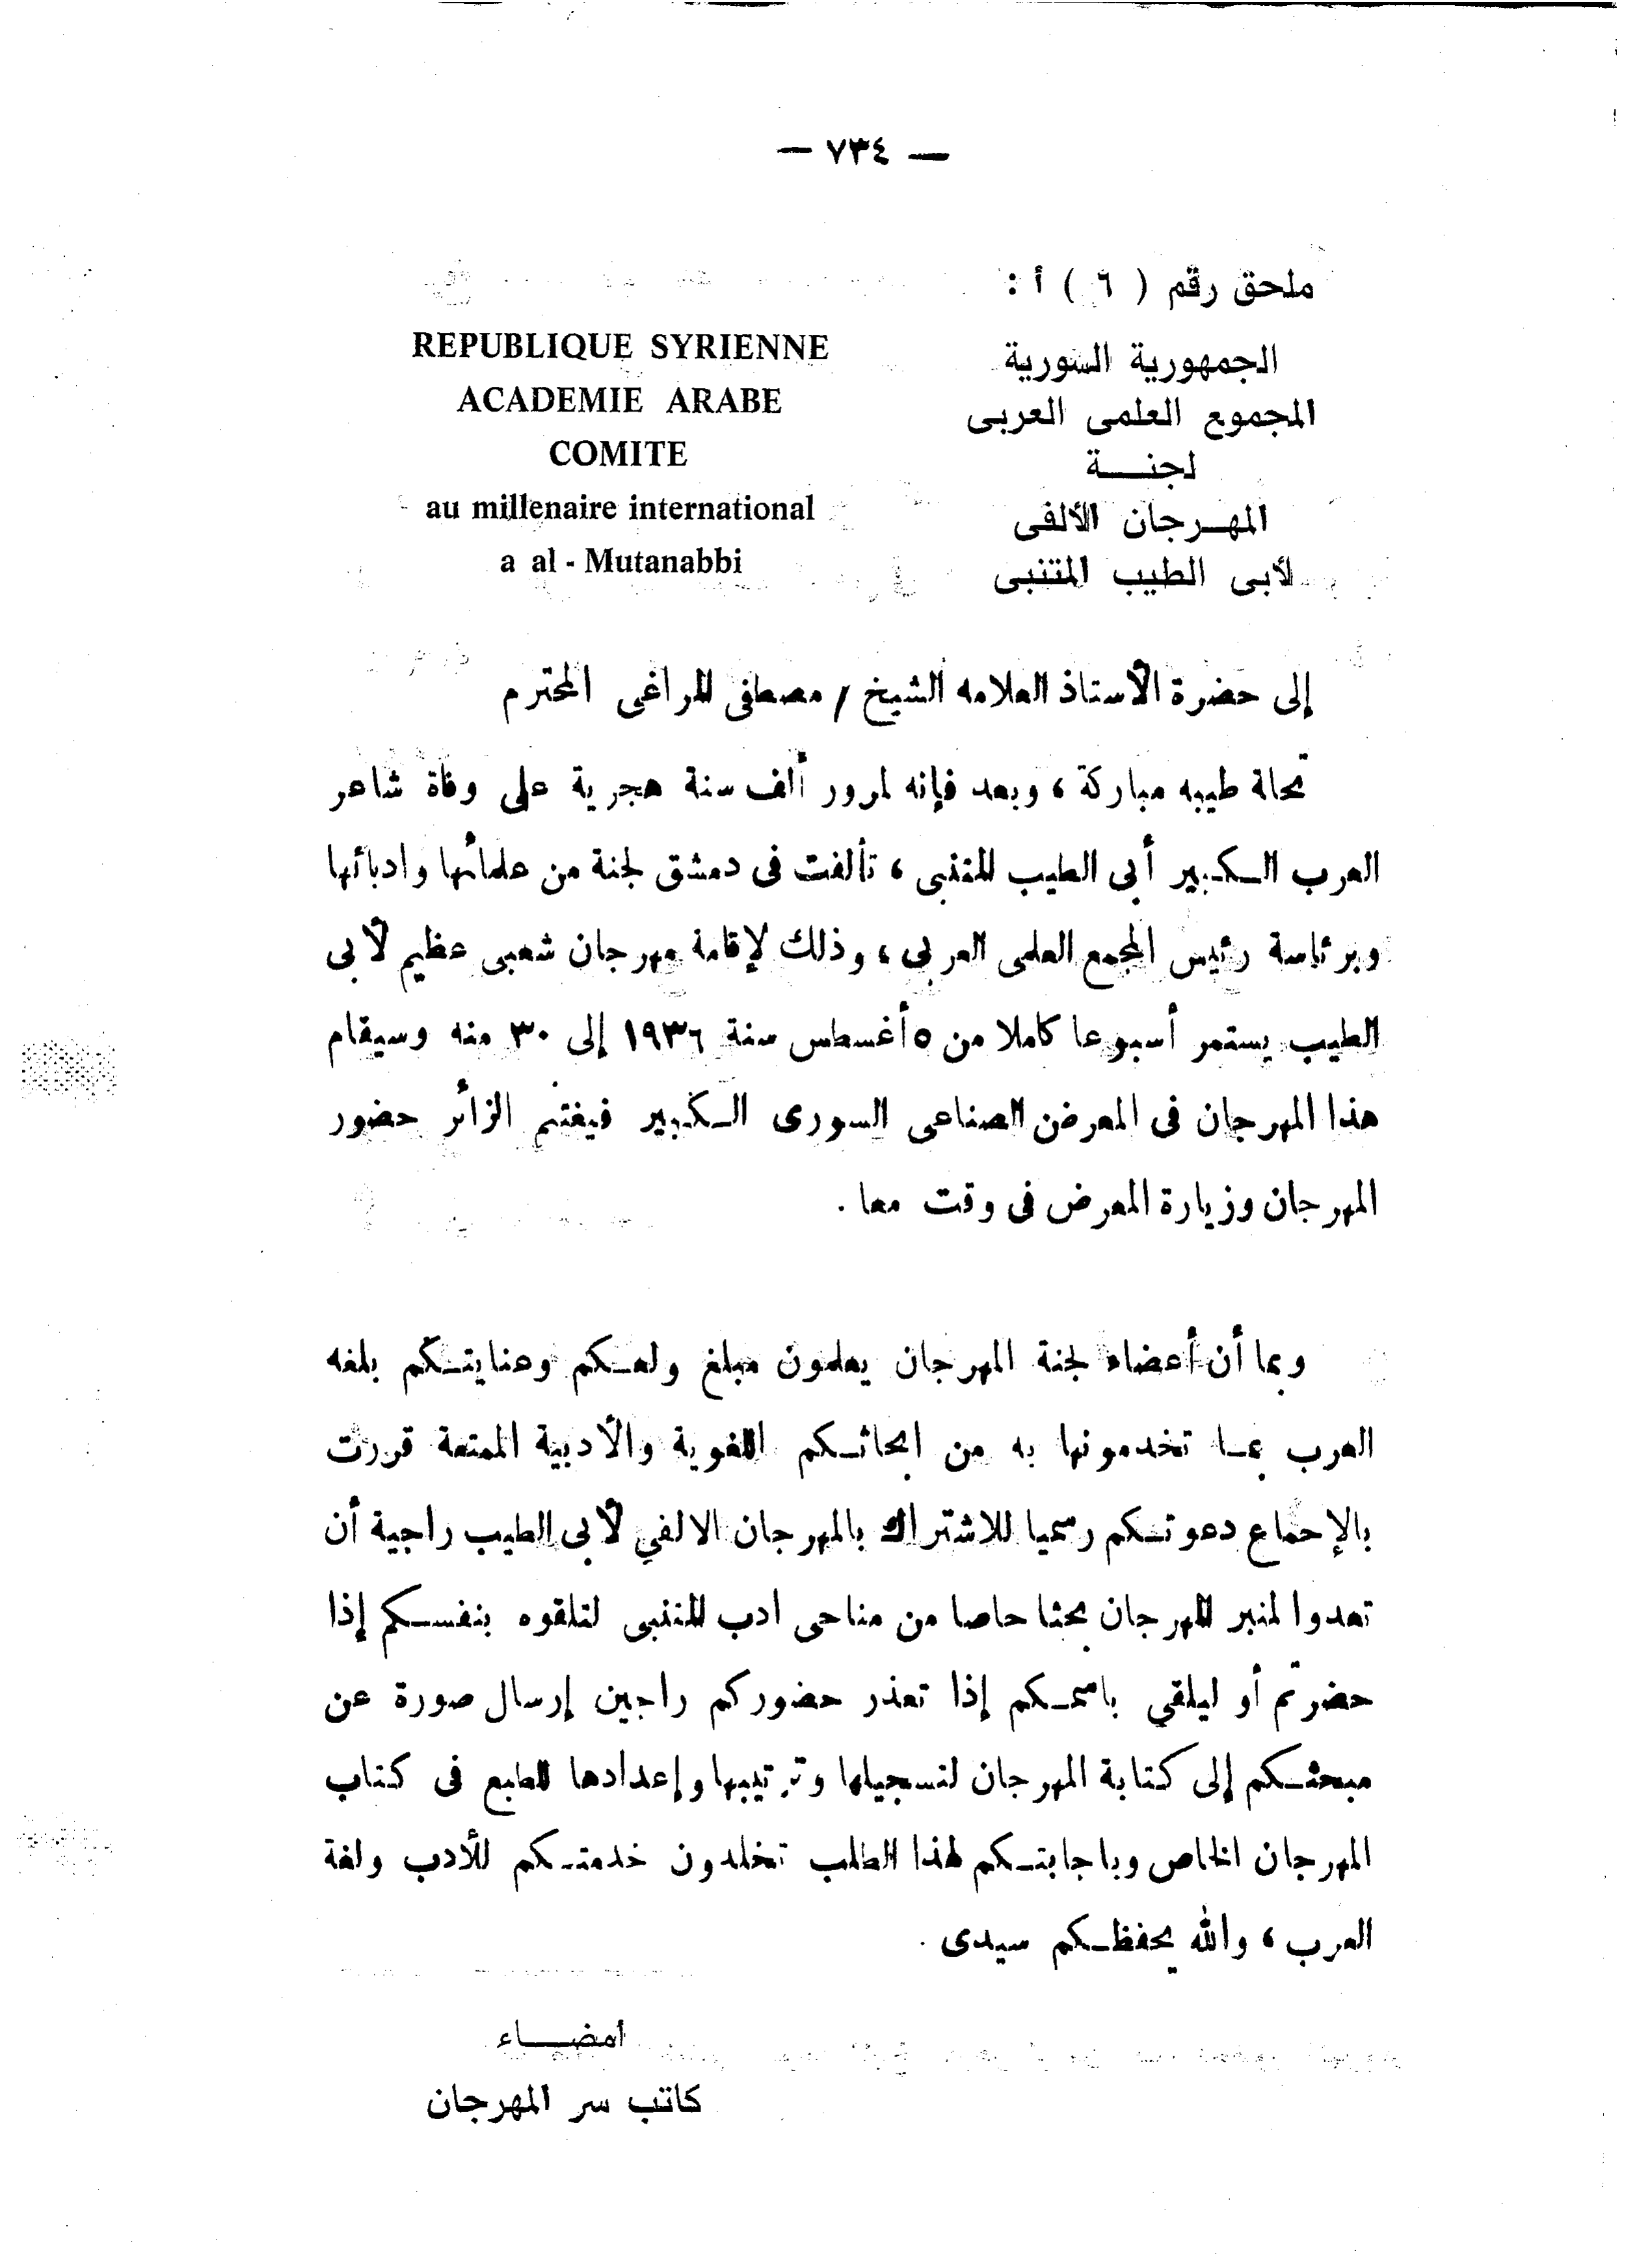 — ٧٣٤ —
ملحق رقم ( ٦ ) أ :
الجمهورية السورية
المجموع العلمى العربى
لجنـــة
المهـرجان الألفى
لأبى الطيب المتنبى
REPUBLIQUE SYRIENNE
ACADEMIE ARABE
COMITE
au millenaire international
a al - Mutanabbi
إلى حضرة الأستاذ العلامه الشيخ / مصطفى المراغى المحترم
تحاة طيبه مباركة ، وبعد فإنه لمرور ألف سنة هجرية على وفاة شاعر
العرب الـكـبير أبى الطيب المتنبى ، تألفت فى دمشق لجنة من علمائها وادبائها
وبرئاسة رئيس المجمع العلمى العربى ، وذلك لإقامة مهرجان شعبى عظيم لأبى
الطيب يستمر أسبوعا كاملا من ٥ أغسطس سنة ١٩٣٦ إلى ٣٠ منه وسيقام
هذا المهرجان فى المعرض الصناعى السورى الـكـبير فيغتنم الزائر حضور
المهرجان وزيارة المعرض فى وقت معا .
وبما أن أعضاء لجنة المهرجان يعلمون مبلغ ولعـكم وعنايتـكم بلغه
العرب بمـا تخدمونها به من ابحاثـكم اللغوية والأدبية الممتعة قررت
بالإجماع دعوتـكم رسميا للاشتراك بالمهرجان الالفي لأبى الطيب راجية أن
تعدوا لمنبر المهرجان بحثا خاصا من مناحى ادب المتنبى لتلقوه بنفسـكم إذا
حضرتم أو ليلقي باسمـكم إذا تعذر حضوركم راجين إرسال صورة عن
مبحثـكم إلى كتابة المهرجان لتسجيلها وترتيبها وإعدادها للطبع فى كتاب
المهرجان الخاص وباجابتـكم لهذا الطلب تخلدون خدمتـكم للأدب ولغة
العرب ، والله يحفظـكم سيدى .
أمضـــاء
كاتب سر المهرجان